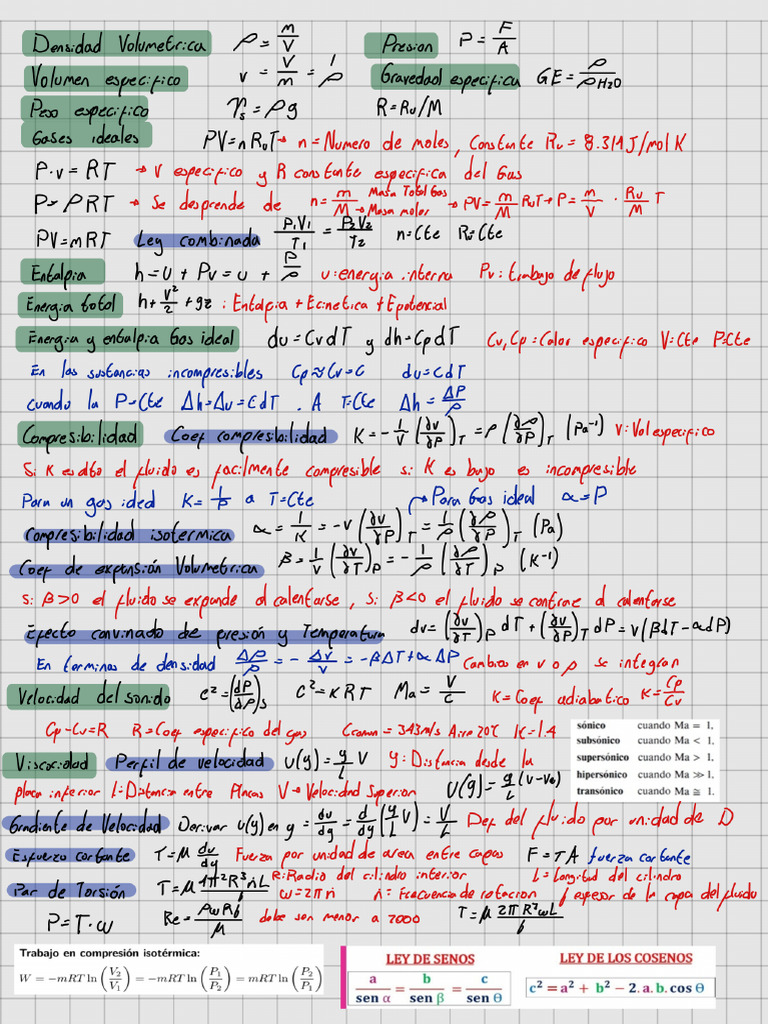 Densidad Volumetrica ρ = m/V Presion P = F/A
Volumen especifico v = V/m = 1/ρ Gravedad especifica GE = ρ/ρH2O
Peso especifico γs = ρg R = Ru/M
Gases ideales PV = nRuT → n = Numero de moles, Constante Ru = 8.314 J/mol K
P·v = RT → v especifico y R constante especifica del Gas
P = ρRT → Se desprende de n = m/M Masa Total Gas → Masa molar → PV = m/M RuT → P = m/V · Ru/M T
PV = mRT Ley combinada P1V1/T1 = P2V2/T2 n = Cte Ru = Cte
Entalpia h = u + Pv = u + P/ρ u: energia interna Pv: trabajo de flujo
Energia total h + V²/2 + gz : Entalpia + Ecinetica + Epotencial
Energia y entalpia Gas ideal du = CvdT y dh = CpdT Cv, Cp = Calor especifico V = Cte P = Cte
En las sustancias incompresibles Cp ≈ Cv = C du = CdT
cuando la P = Cte Δh = Δu = CdT . A T = Cte Δh = ΔP/ρ
Compresibilidad Coef compresibilidad K = -1/v (∂v/∂P)T = ρ (∂ρ/∂P)T (Pa⁻¹) v: Vol especifico
Si K es alto el fluido es facilmente compresible si K es bajo es incompresible
Para un gas ideal K = 1/P a T = Cte → Para Gas ideal α = P
Compresibilidad isotermica α = 1/K = -v (∂v/∂P)T = 1/ρ (∂ρ/∂P)T (Pa)
Coef de expansión Volumetrica β = 1/v (∂v/∂T)P = -1/ρ (∂ρ/∂T)P (K⁻¹)
Si β>0 el fluido se expande al calentarse, Si β<0 el fluido se contrae al calentarse
Efecto convinado de presión y Temperatura dv = (∂v/∂T)P dT + (∂v/∂P)T dP = v(βdT - αdP)
En terminos de densidad Δρ/ρ = -Δv/v = -βΔT + αΔP Cambios en v o ρ se integran
Velocidad del sonido c² = (∂P/∂ρ)s c² = KRT Ma = V/c K = Coef adiabatico K = Cp/Cv
Cp - Cv = R R = Coef especifico del gas Ccomun = 343m/s Aire 20℃ K = 1.4
sónico cuando Ma = 1,
subsónico cuando Ma < 1,
supersónico cuando Ma > 1,
hipersónico cuando Ma ≫ 1,
transónico cuando Ma ≅ 1.
Viscocidad Perfil de velocidad u(y) = y/L V y: Distancia desde la
placa inferior l = Distancia entre Placas V → Velocidad Superior U(y) = y/L (V-Vo)
Gradiente de Velocidad Derivar u(y) en y = du/dy = d/dy (y/L V) = V/L Def del fluido por unidad de D
Esfuerzo cortante T = μ du/dy Fuerza por unidad de area entre capas F = TA fuerza cortante
Par de Torsión T = μ 4π²R³ṅL/b R: Radio del cilindro interior L = Longitud del cilindro
ω = 2πṅ ṅ: Frecuencia de rotacion b espesor de la capa del fluido
P = T·ω Re = ρωRb/μ debe ser menor a 2000 T = μ 2πR³ωL/b
Trabajo en compresión isotérmica:
W = −mRT ln (V2/V1) = −mRT ln (P1/P2) = mRT ln (P2/P1)
LEY DE SENOS
a/sen α = b/sen β = c/sen θ
LEY DE LOS COSENOS
c² = a² + b² – 2.a.b.cos θ